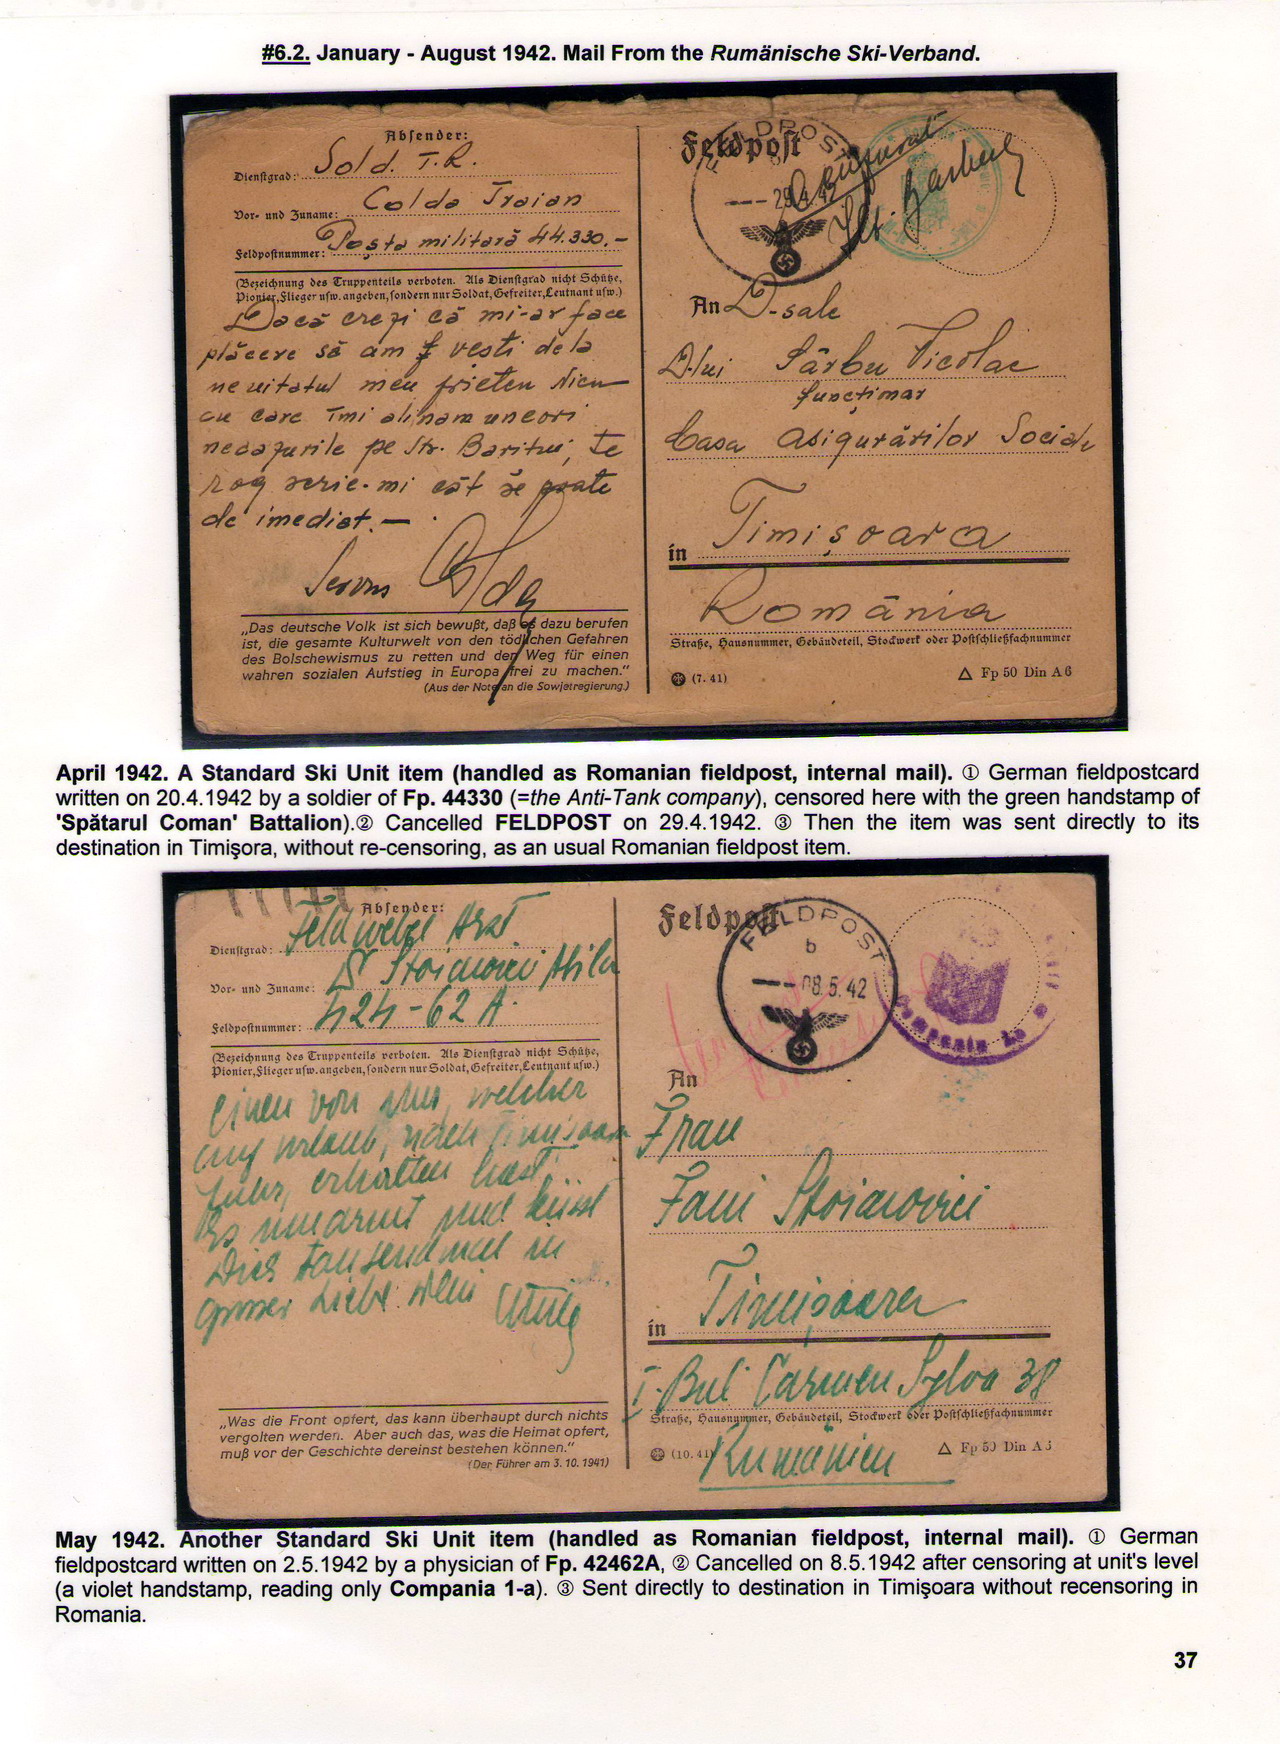 #6.2. January - August 1942. Mail From the Rumänische Ski-Verband.
Absender:
Dienstgrad: Sold. T.R.
Vor- und Zuname: Colda Traian
Feldpostnummer: Poșta militară 44.330.-
(Bezeichnung des Truppenteils verboten. Als Dienstgrad nicht Schütze,
Pionier, Flieger usw. angeben, sondern nur Soldat, Gefreiter, Leutnant usw.)
Dacă crezi că mi-ar face
plăcere să am vești dela
neuitatul meu prieten Nicu
cu care îmi alinam uneori
necazurile pe Str. Barițiu, te
rog scrie-mi cât se poate
de imediat.-
Servus Colda
„Das deutsche Volk ist sich bewußt, daß es dazu berufen
ist, die gesamte Kulturwelt von den tödlichen Gefahren
des Bolschewismus zu retten und den Weg für einen
wahren sozialen Aufstieg in Europa frei zu machen.“
(Aus der Note an die Sowjetregierung.)
Feldpost
FELDPOST
29.4.42
Cenzurat
An D-sale
D-lui Sârbu Nicolae
funcționar
Casa Asigurărilor Sociale
in Timișoara
România
Straße, Hausnummer, Gebäudeteil, Stockwerk oder Postschließfachnummer
(7. 41)
△ Fp 50 Din A 6
April 1942. A Standard Ski Unit item (handled as Romanian fieldpost, internal mail). ① German fieldpostcard
written on 20.4.1942 by a soldier of Fp. 44330 (=the Anti-Tank company), censored here with the green handstamp of
'Spătarul Coman' Battalion).② Cancelled FELDPOST on 29.4.1942. ③ Then the item was sent directly to its
destination in Timişora, without re-censoring, as an usual Romanian fieldpost item.
Absender:
Dienstgrad: Feldwebel Arzt
Vor- und Zuname: Dr Stoianovici
Feldpostnummer: 424-62 A.
(Bezeichnung des Truppenteils verboten. Als Dienstgrad nicht Schütze,
Pionier, Flieger usw. angeben, sondern nur Soldat, Gefreiter, Leutnant usw.)
einen von uns, welcher
auf urlaub, nach Timisoara
fuhr, erhalten hast.
Es umarmt und küsst
Dich tausendmal in
grosser Liebe dein
„Was die Front opfert, das kann überhaupt durch nichts
vergolten werden. Aber auch das, was die Heimat opfert,
muß vor der Geschichte dereinst bestehen können.“
(Der Führer am 3. 10. 1941)
Feldpost
FELDPOST
b
08.5.42
Compania 1-a
An
Frau
Fani Stoianovici
in Timișoara
I. Bul. Carmen Sylva 38
Straße, Hausnummer, Gebäudeteil, Stockwerk oder Postschließfachnummer
(10. 41)
Rumänien
△ Fp 50 Din A 6
May 1942. Another Standard Ski Unit item (handled as Romanian fieldpost, internal mail). ① German
fieldpostcard written on 2.5.1942 by a physician of Fp. 42462A, ② Cancelled on 8.5.1942 after censoring at unit's level
(a violet handstamp, reading only Compania 1-a). ③ Sent directly to destination in Timişoara without recensoring in
Romania.
37